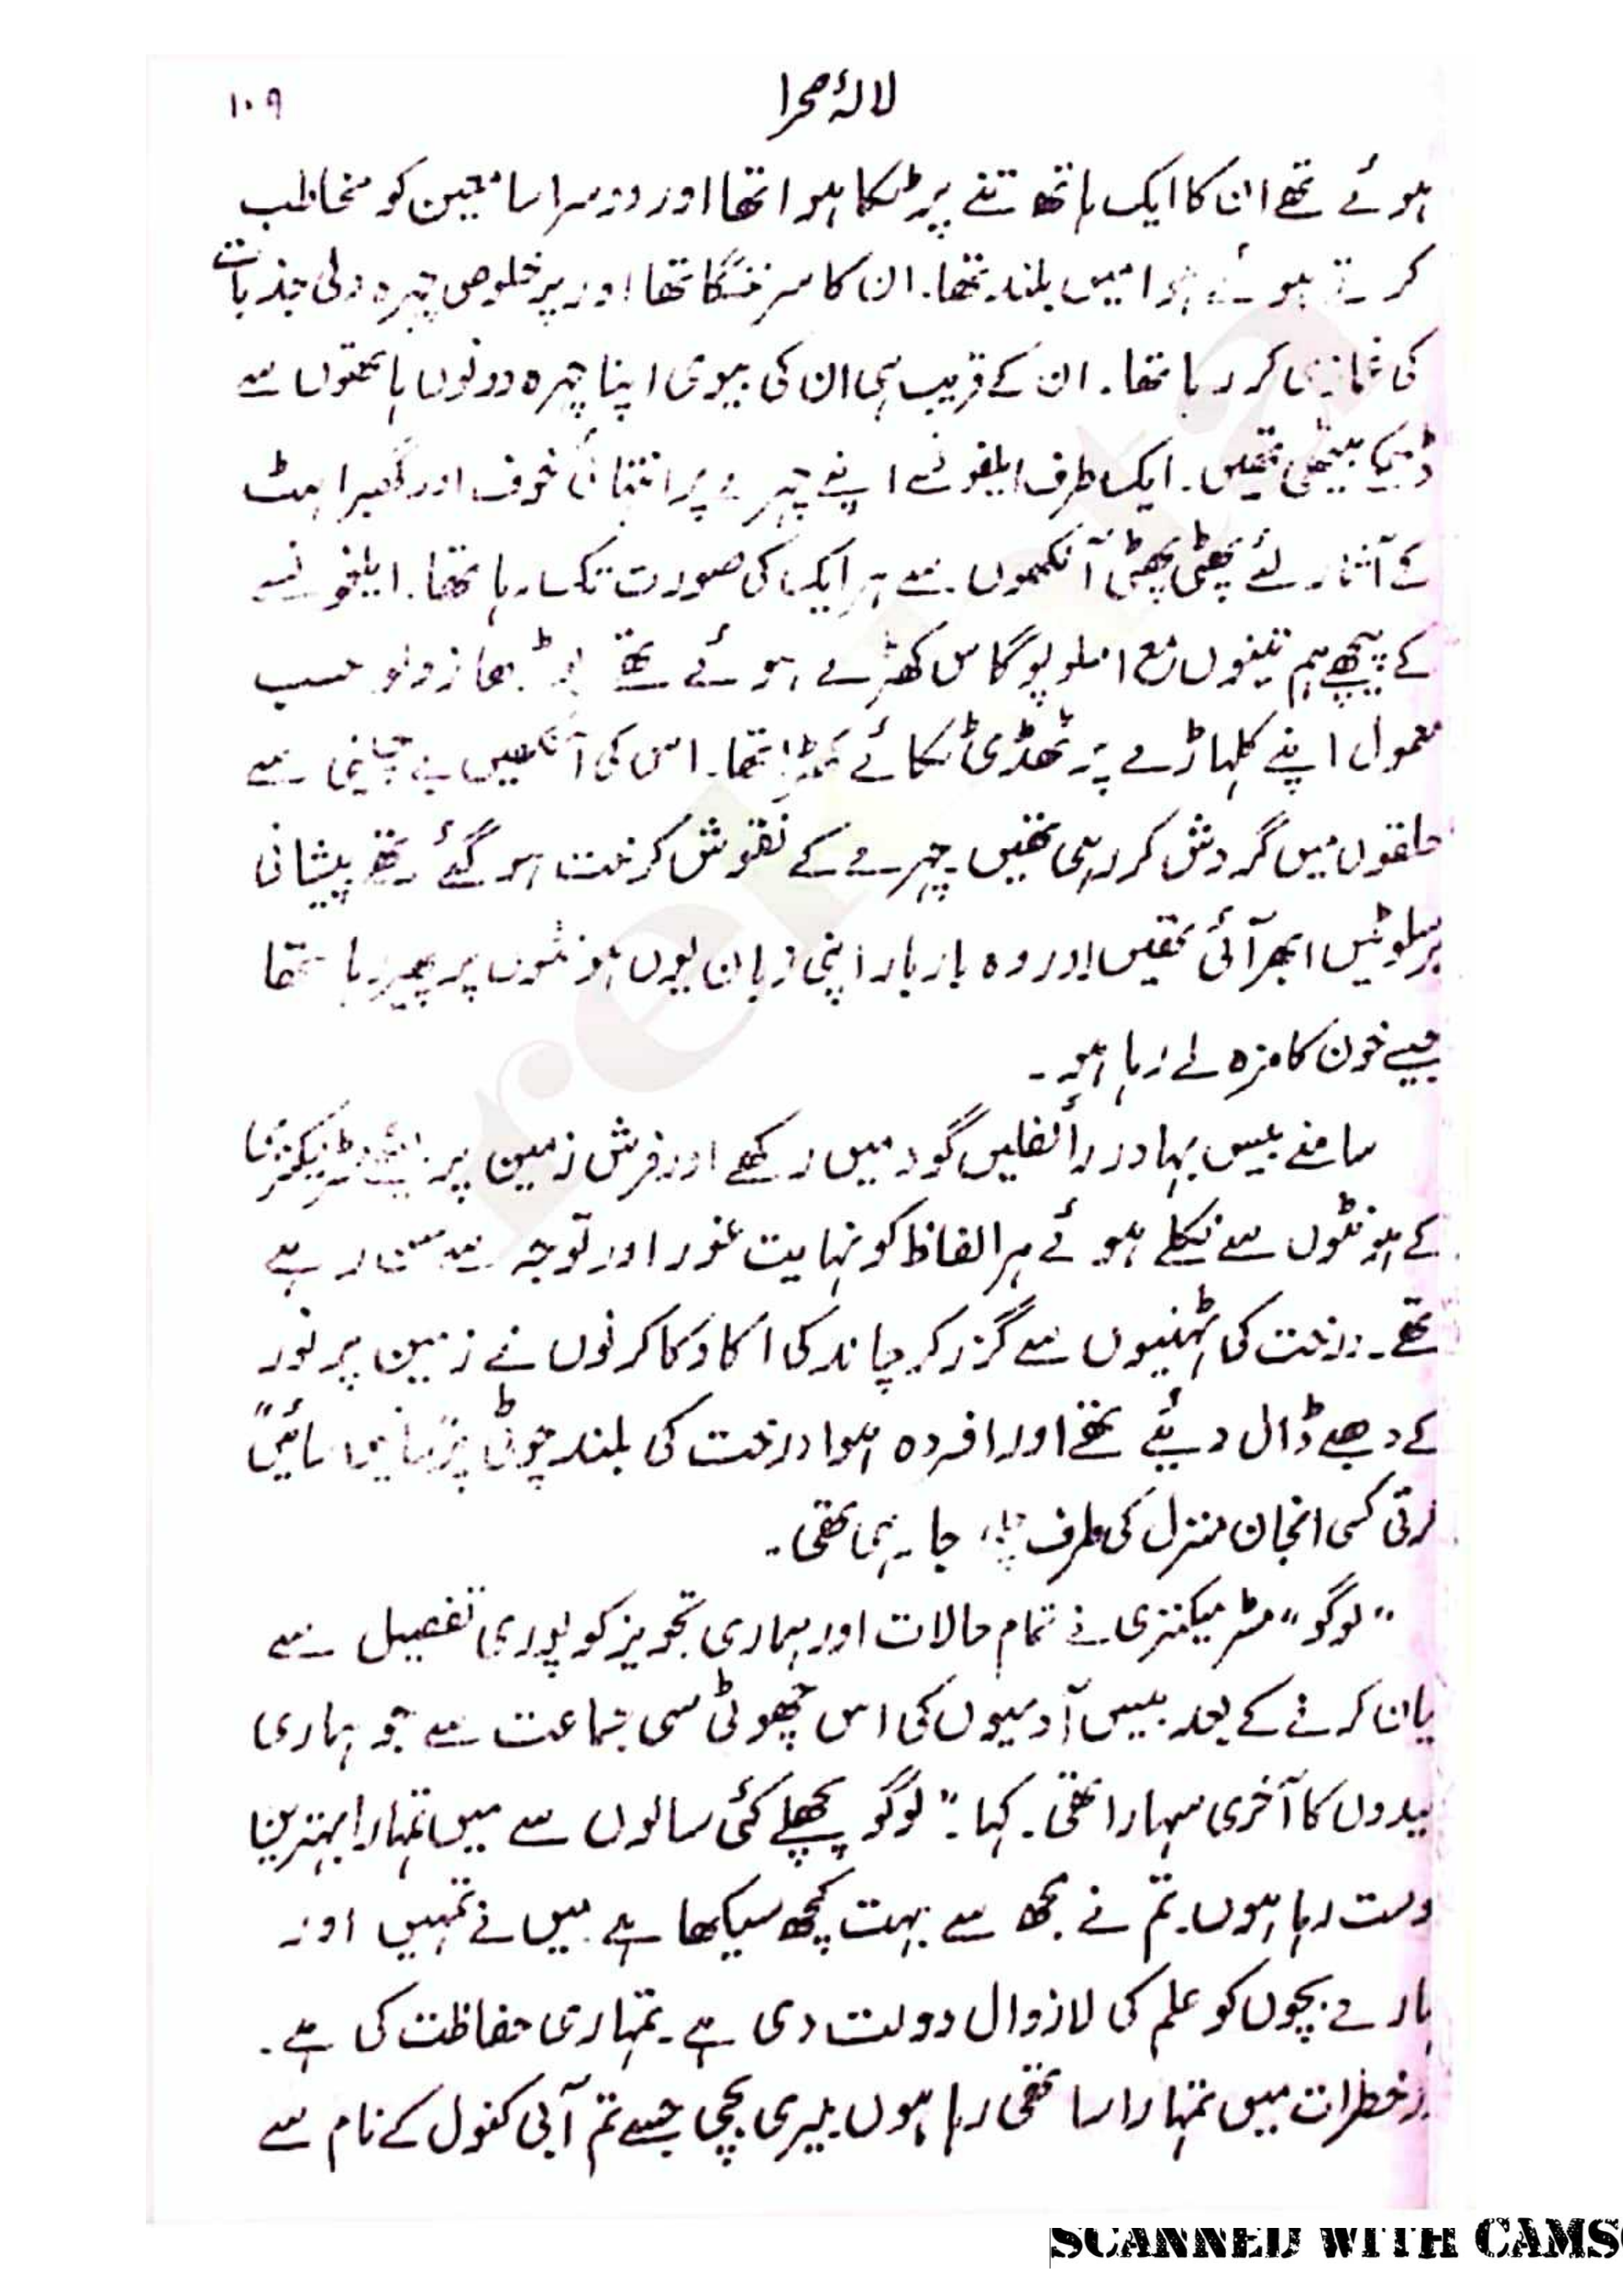 لالۂ صحرا ۱۰۹
ہوئے تھے ان کا ایک ہاتھ تنے پر ٹکا ہوا تھا اور دوسرا سامعین کو مخاطب
کرتے ہوئے ہوا میں بلند تھا۔ ان کا سر ننگا تھا اور پرخلوص چہرہ دلی جذبات
کی غمازی کر رہا تھا۔ ان کے قریب ہی ان کی بیوی اپنا چہرہ دونوں ہاتھوں سے
بیٹھی تھیں۔ ایک طرف ایلفونسے اپنے چہرے پر انتہائی خوف اور گھبراہٹ
کے آثار لئے پھٹی پھٹی آنکھوں سے ہر ایک کی صورت تک رہا تھا۔ ایلفونسے
کے پیچھے ہم تینوں مع املوپوگاس کھڑے ہوئے تھے بوڑھا زولو حسب
معمول اپنے کلہاڑے پر ٹھڈی ٹکائے کھڑا تھا۔ اس کی آنکھیں بے چینی سے
حلقوں میں گردش کر رہی تھیں چہرے کے نقوش کرخت ہو گئے تھے پیشانی
پر سلوٹیں ابھر آئی تھیں اور وہ بار بار اپنی زبان یوں ہونٹوں پر پھیر رہا تھا
جیسے خون کا مزہ لے رہا ہو۔
سامنے بیس بہادر رائفلیں گود میں رکھے اور فرش زمین پر
کے ہونٹوں سے نکلے ہوئے ہر الفاظ کو نہایت غور اور توجہ سے سن رہے
تھے۔ درخت کی ٹہنیوں سے گزر کر چاند کی اکا دکا کرنوں نے زمین پر نور
کے دھبے ڈال دیئے تھے اور افردہ ہوا درخت کی بلند چوٹی پر "سائیں سائیں"
کرتی کسی انجان منزل کی طرف چلی جا رہی تھی۔
"لوگو" مسٹر میکنزی نے تمام حالات اور ہماری تجویز کو پوری تفصیل سے
یان کرنے کے بعد بیس آدمیوں کی اس چھوٹی سی جماعت سے جو ہماری
یدوں کا آخری سہارا تھی۔ کہا۔ "لوگو پچھلے کئی سالوں سے میں تمہارا بہترین
وست رہا ہوں۔ تم نے مجھ سے بہت کچھ سیکھا ہے میں نے تمہیں اور
ہارے بچوں کو علم کی لازوال دولت دی ہے۔ تمہاری حفاظت کی ہے۔
خطرات میں تمہارا ساتھی رہا ہوں میری بچی جسے تم آبی کنول کے نام سے
SCANNED WITH CAMS